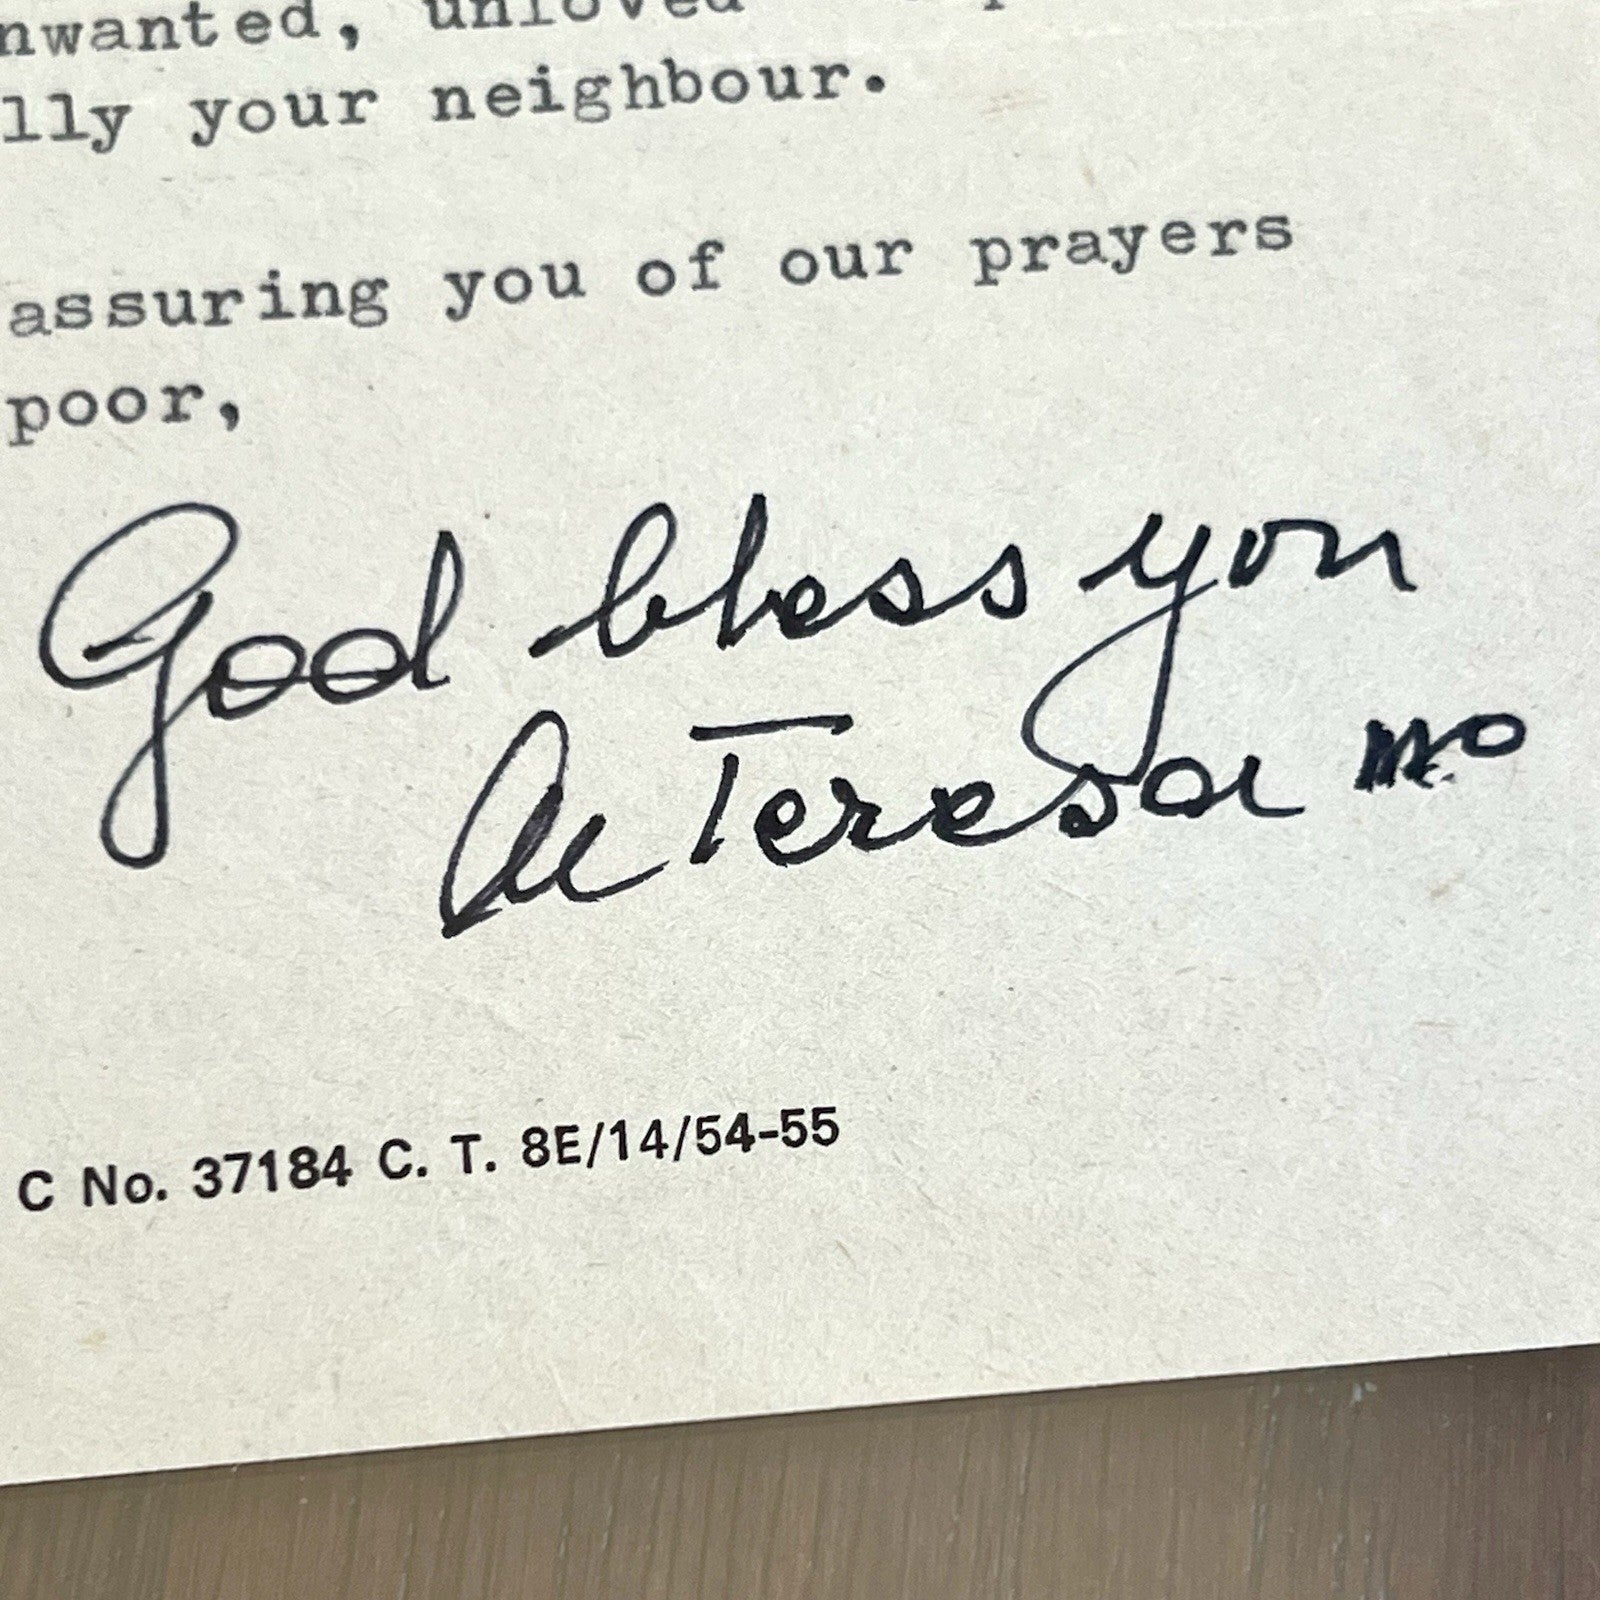 nwanted, unloved
lly your neighbour.
assuring you of our prayers
poor,
God bless you
lle Teresa mc
C No. 37184 C. T. 8E/14/54-55